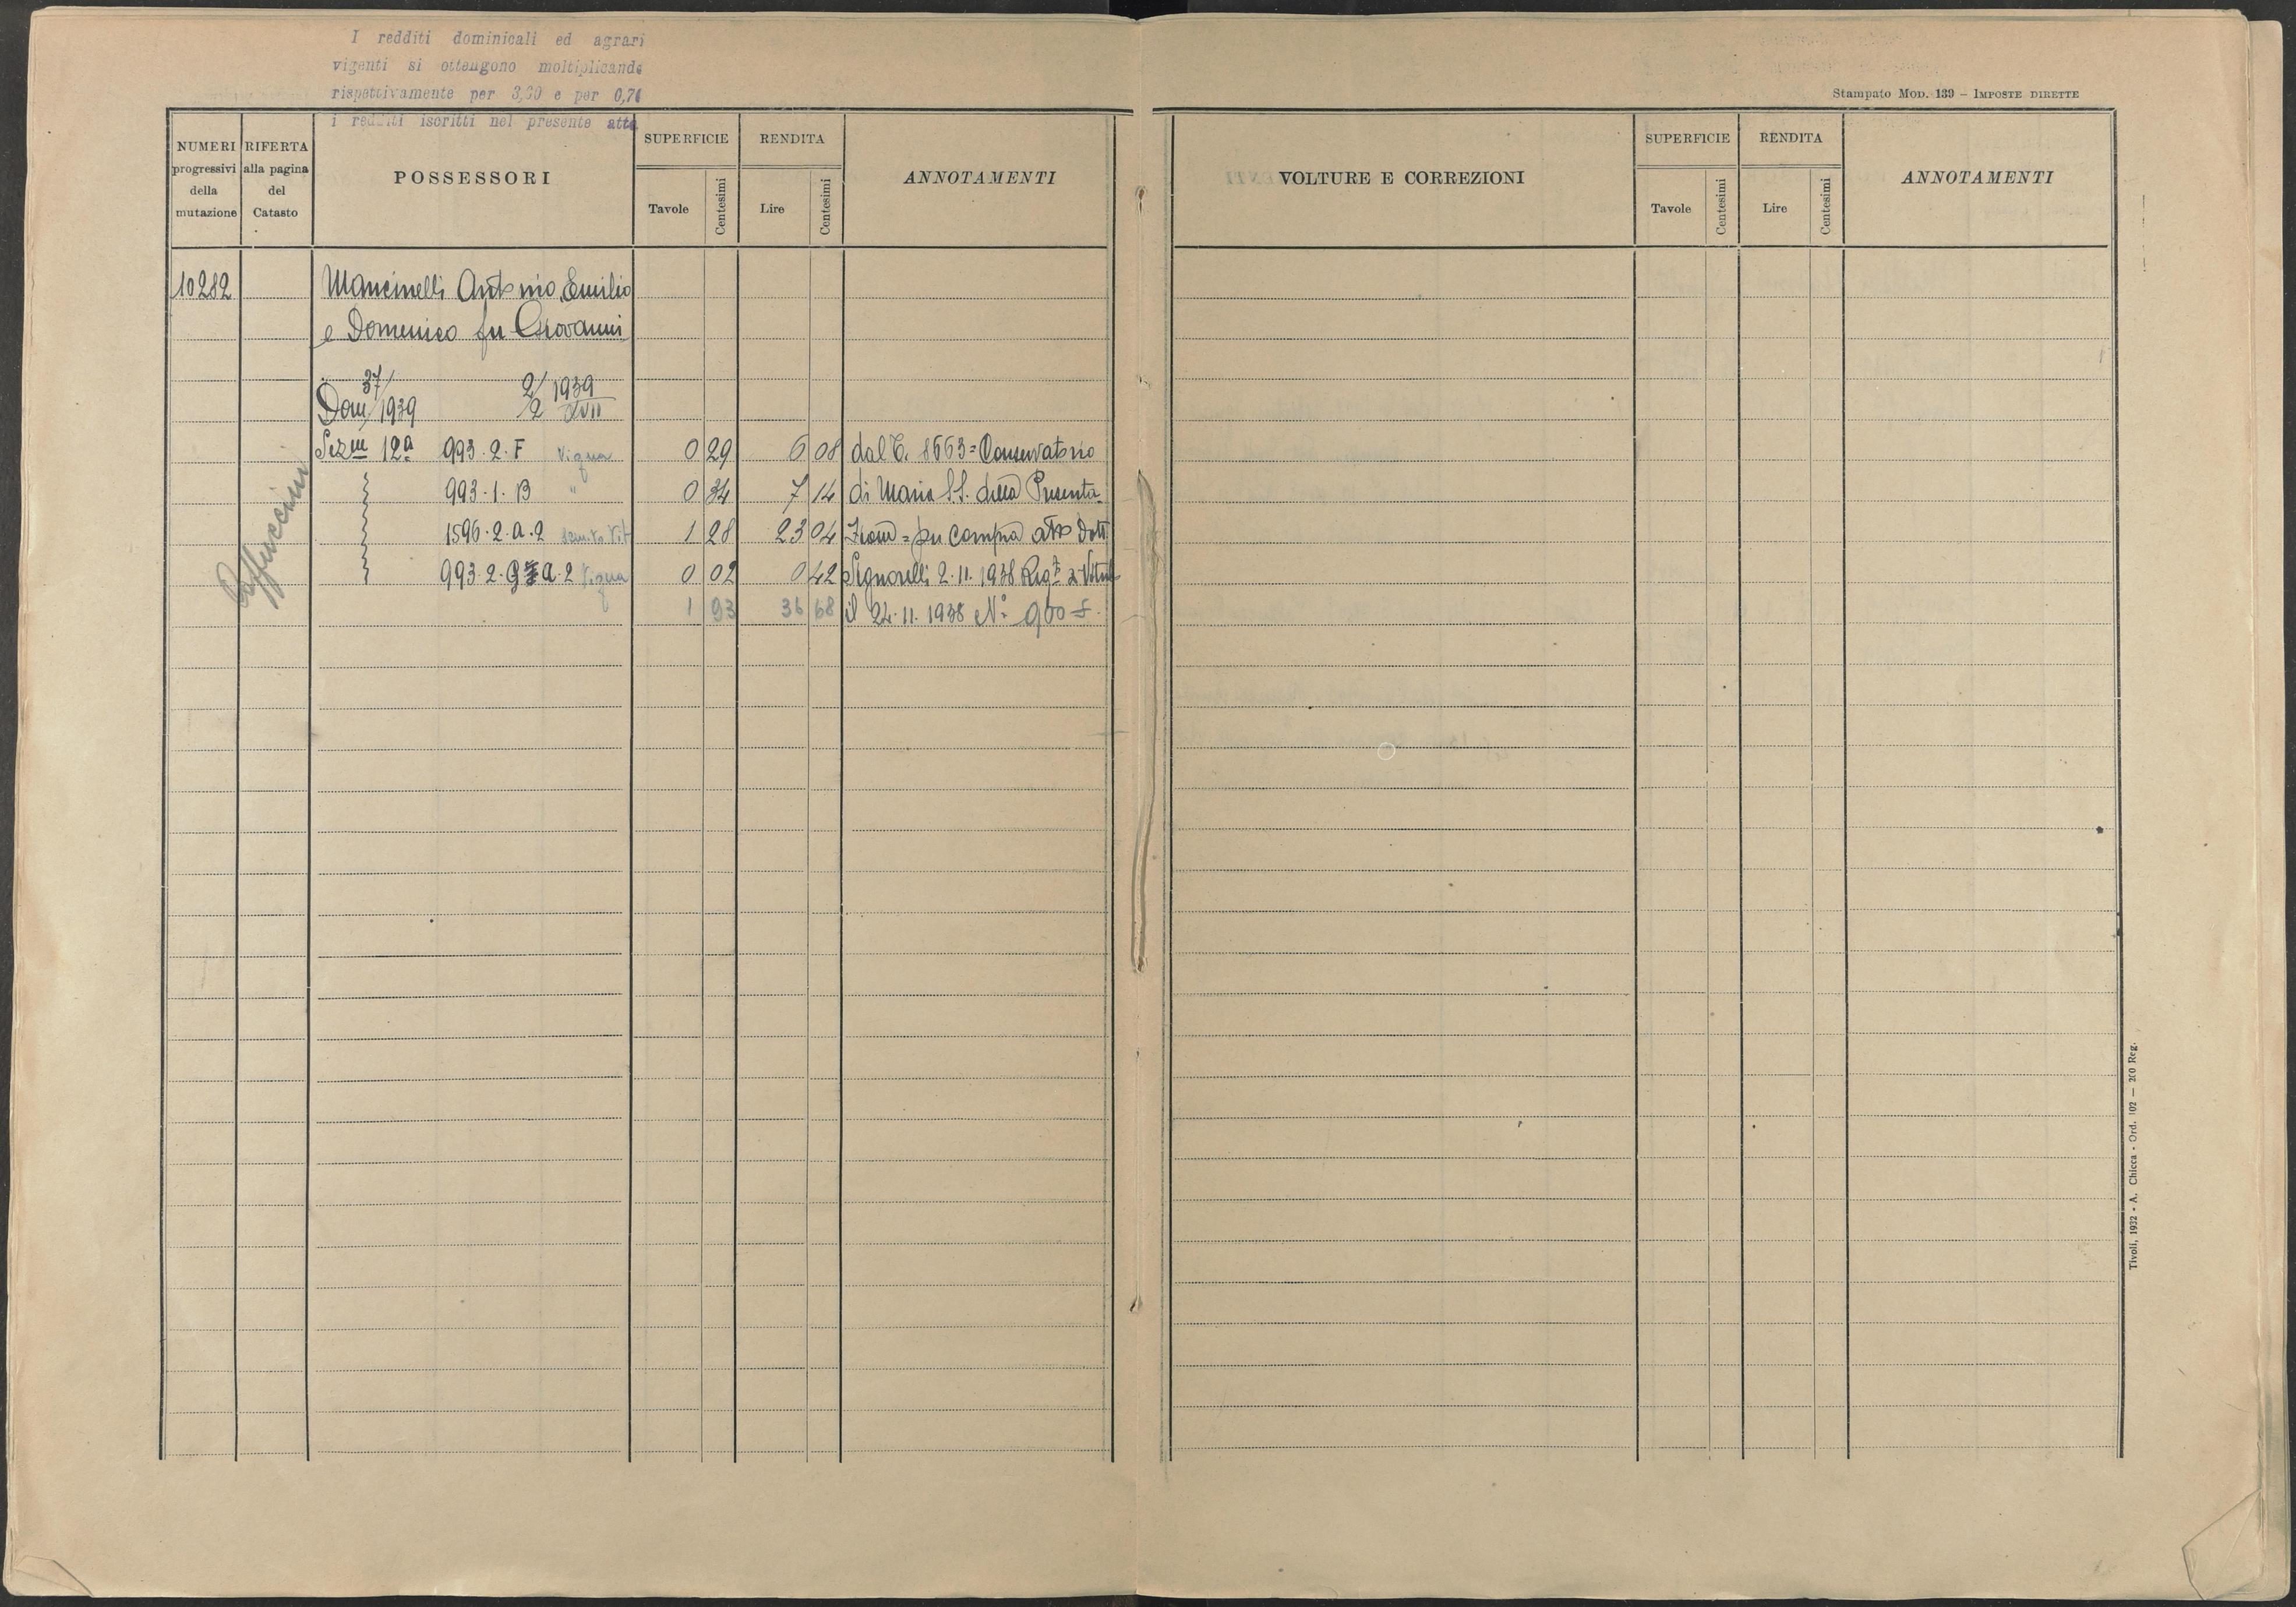 I redditi dominicali ed agrari
vigenti si ottengono moltiplicando
rispettivamente per 3,60 e per 0,74
i redditi iscritti nel presente atto
NUMERI progressivi della mutazione
RIFERTA alla pagina del Catasto
POSSESSORI
SUPERFICIE
Tavole Centesimi
RENDITA
Lire Centesimi
ANNOTAMENTI
10282 Mancinelli Antonio, Emilio
e Domenico fu Giovanni
Dom 37/1939 2/2 1939 XVII
Sezne 12a 993.2.F Vigna 0 29 6 08 dal C. 8663 = Conservatorio
993.1.B " 0 34 7 14 di Maria S.S. della Presenta-
1596.2.a.2 Vit 1 28 23 04 zione = per compra atto Dott
993.2. a.2 Vigna 0 02 0 42 Signorelli 2.11.1938 Regto a
1 93 36 68 il 24.11.1938 N°
Stampato Mod. 139 – Imposte dirette
VOLTURE E CORREZIONI
SUPERFICIE
Tavole Centesimi
RENDITA
Lire Centesimi
ANNOTAMENTI
Tivoli, 1932 - A. Chicca - Ord. 102 — 200 Reg.